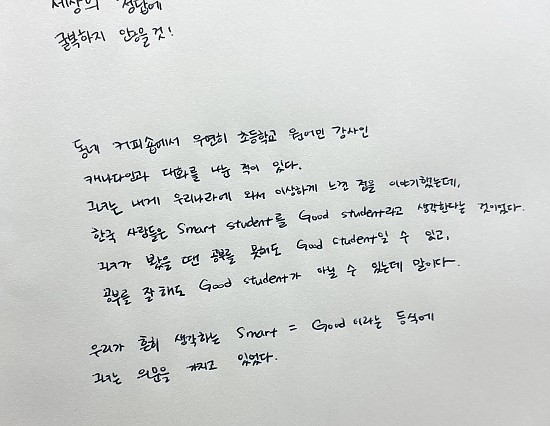 세상의 정답에
굴복하지 않을 것!
동네 커피숍에서 우연히 초등학교 원어민 강사인
캐나다인과 대화를 나눈 적이 있다.
그녀는 내게 우리나라에 와서 이상하게 느낀 점을 이야기했는데,
한국 사람들은 Smart student를 Good student라고 생각한다는 것이었다.
그녀가 봤을 땐 공부를 못해도 Good student일 수 있고,
공부를 잘해도 Good student가 아닐 수 있는데 말이다.
우리가 흔히 생각하는 Smart = Good 이라는 등식에
그녀는 의문을 가지고 있었다.